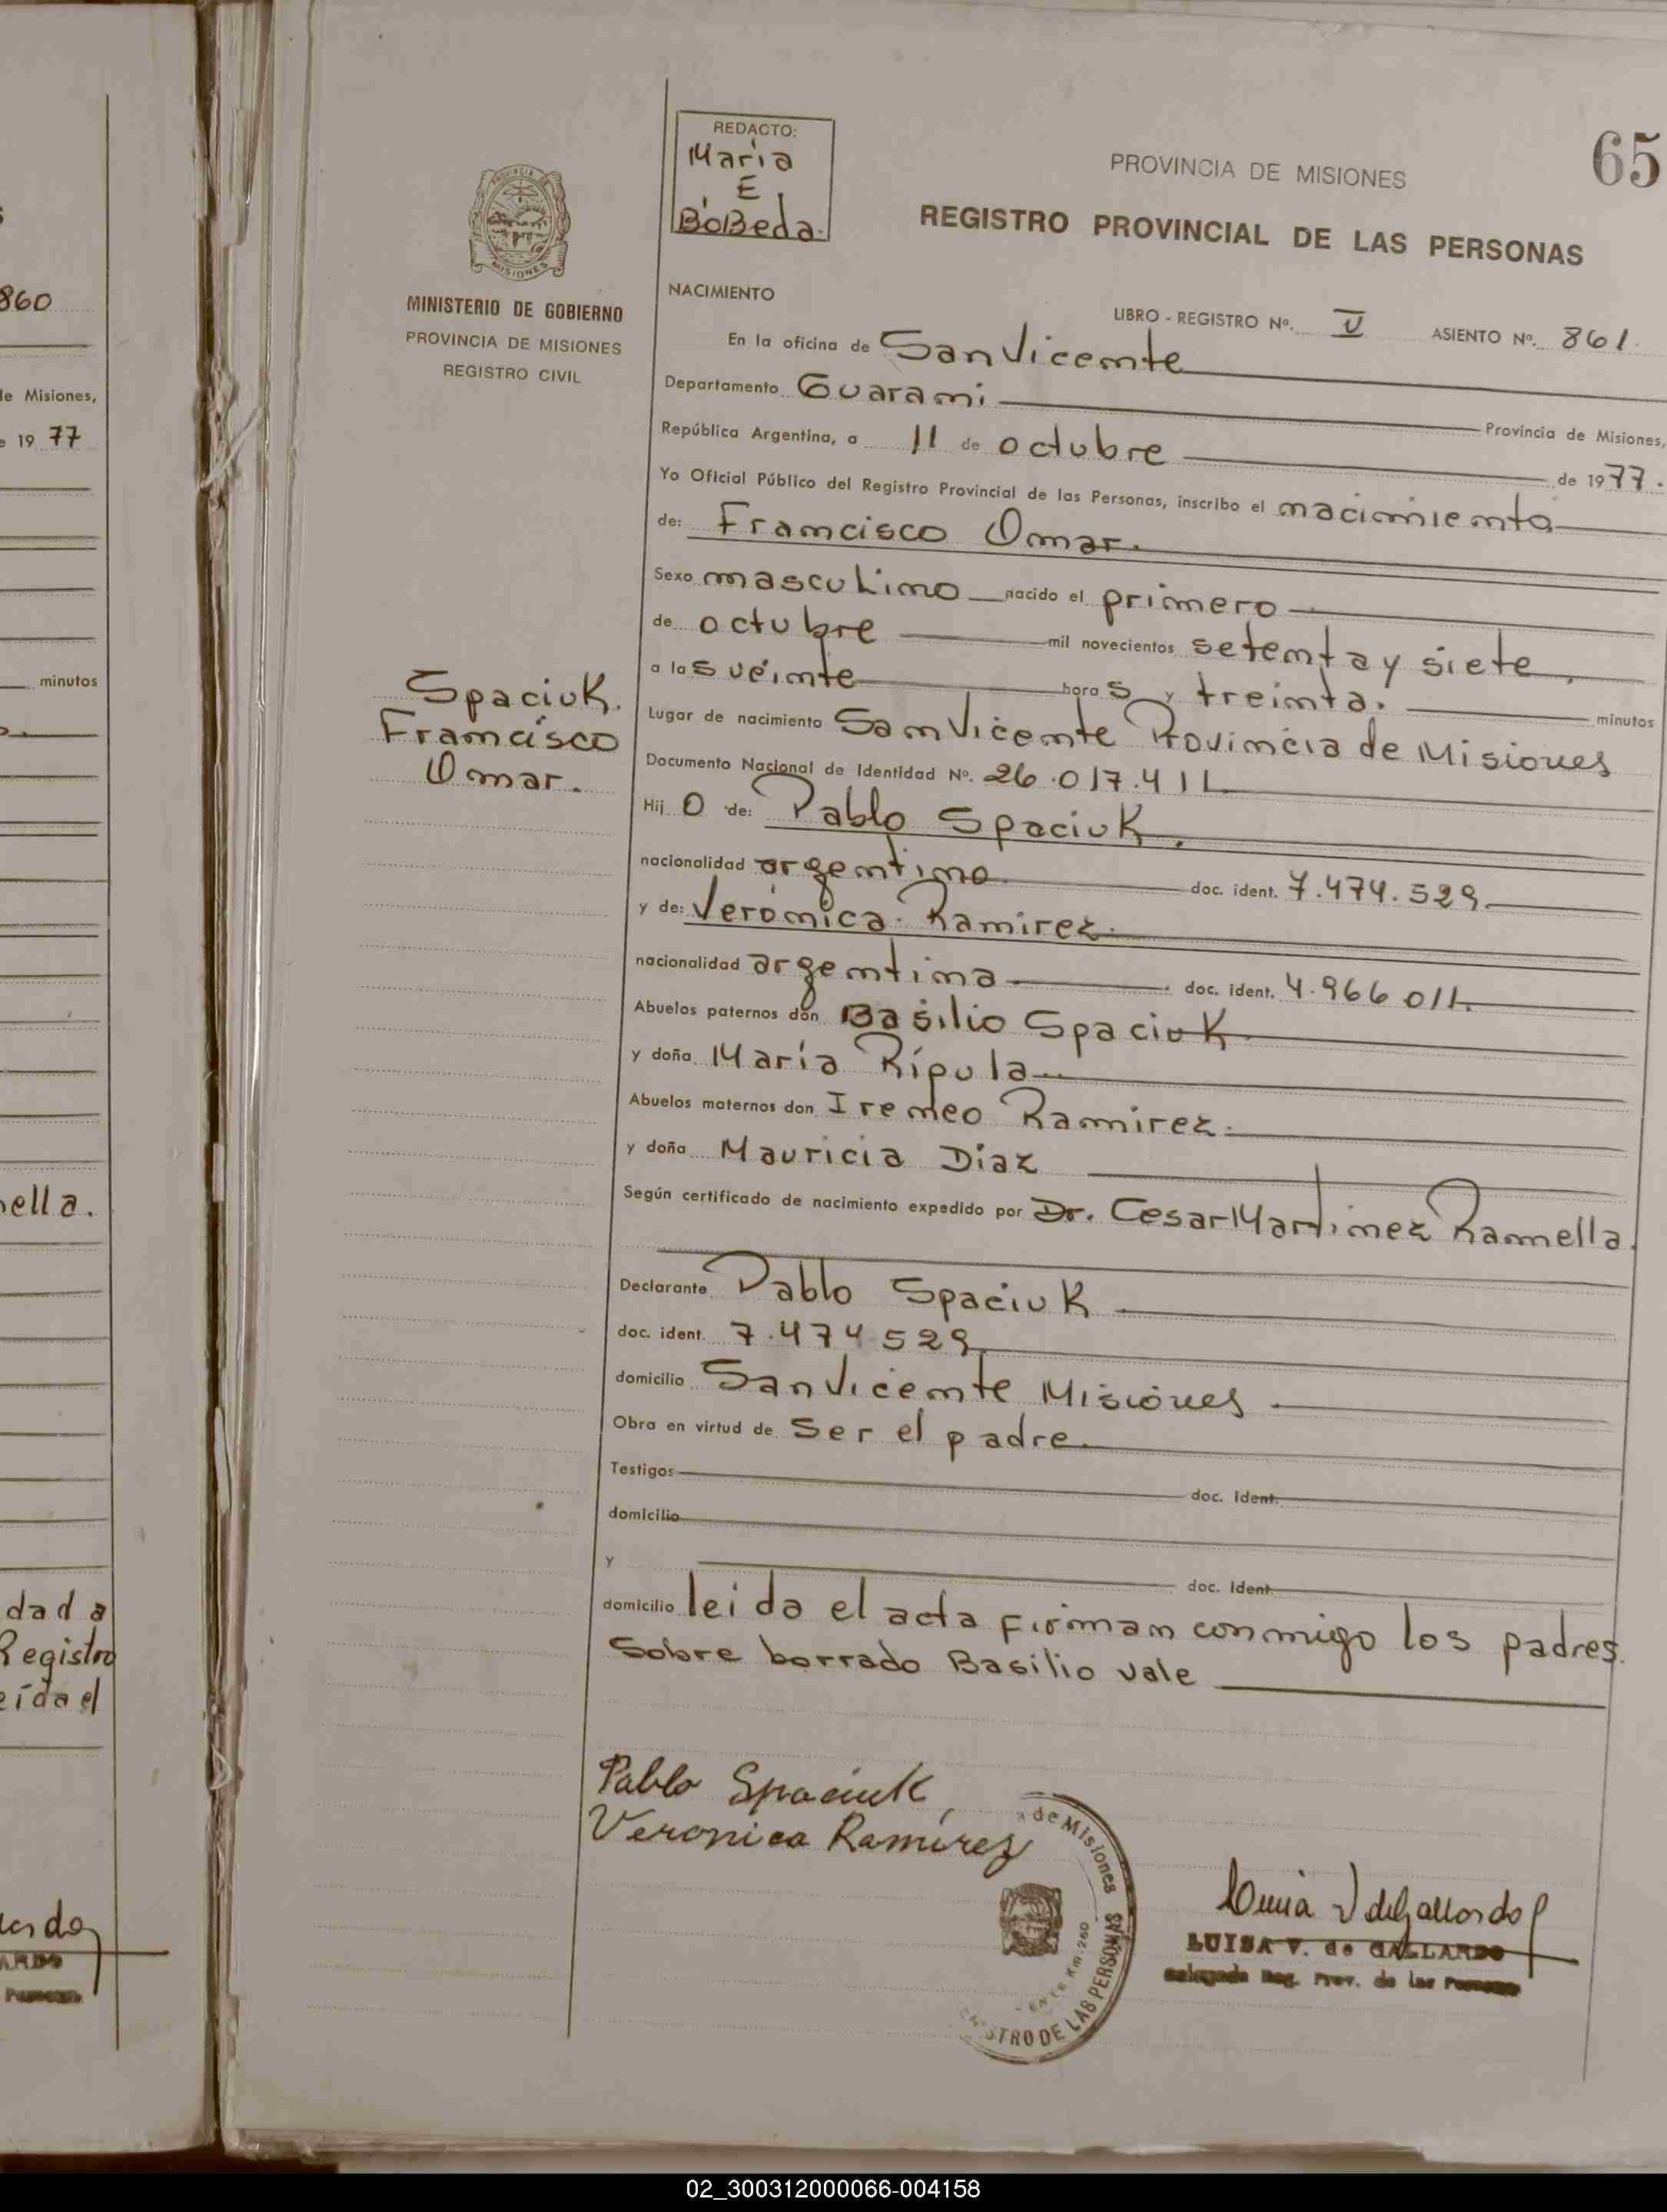 860
de Misiones,
e 19 77
minutos
nella.
dad a
Registro
eída el
65
REDACTO:
Maria
E
BoBeda.
PROVINCIA DE MISIONES
REGISTRO PROVINCIAL DE LAS PERSONAS
PROVINCIA DE
MISIONES
MINISTERIO DE GOBIERNO
PROVINCIA DE MISIONES
REGISTRO CIVIL
NACIMIENTO
LIBRO - REGISTRO Nº. V ASIENTO Nº. 861.
En la oficina de San Vicente
Departamento Guarani Provincia de Misiones,
República Argentina, a 11 de octubre de 1977.
Yo Oficial Público del Registro Provincial de las Personas, inscribo el nacimiento
de: Francisco Omar.
Sexo masculino nacido el primero
de octubre mil novecientos setenta y siete,
a las veinte horas y treinta. minutos
Lugar de nacimiento San Vicente Provincia de Misiones
Documento Nacional de Identidad Nº. 26.017.411
Hijo de: Pablo Spaciuk.
nacionalidad argentino doc. ident. 7.474.529.
y de: Verónica Ramirez.
nacionalidad argentina doc. ident. 4.966 011.
Abuelos paternos don Basilio Spaciuk
y doña María Rípula
Abuelos maternos don Ireneo Ramirez.
y doña Mauricia Diaz
Según certificado de nacimiento expedido por Dr. Cesar Martinez Rannella.
Declarante Pablo Spaciuk
doc. ident. 7.474 529
domicilio San Vicente Misiones
Obra en virtud de Ser el padre.
Testigos doc. ident.
domicilio
y doc. Ident.
domicilio leida el acta firman conmigo los padres.
Sobre borrado Basilio vale
Spaciuk.
Francisco
Omar.
Pablo Spaciuk,
Veronica Ramírez
de Misiones
Km. 260
STRO DE LAS PERSONAS
LUISA V. de GALLARDO
Delegada Reg. Prov. de las Personas
02_300312000066-004158